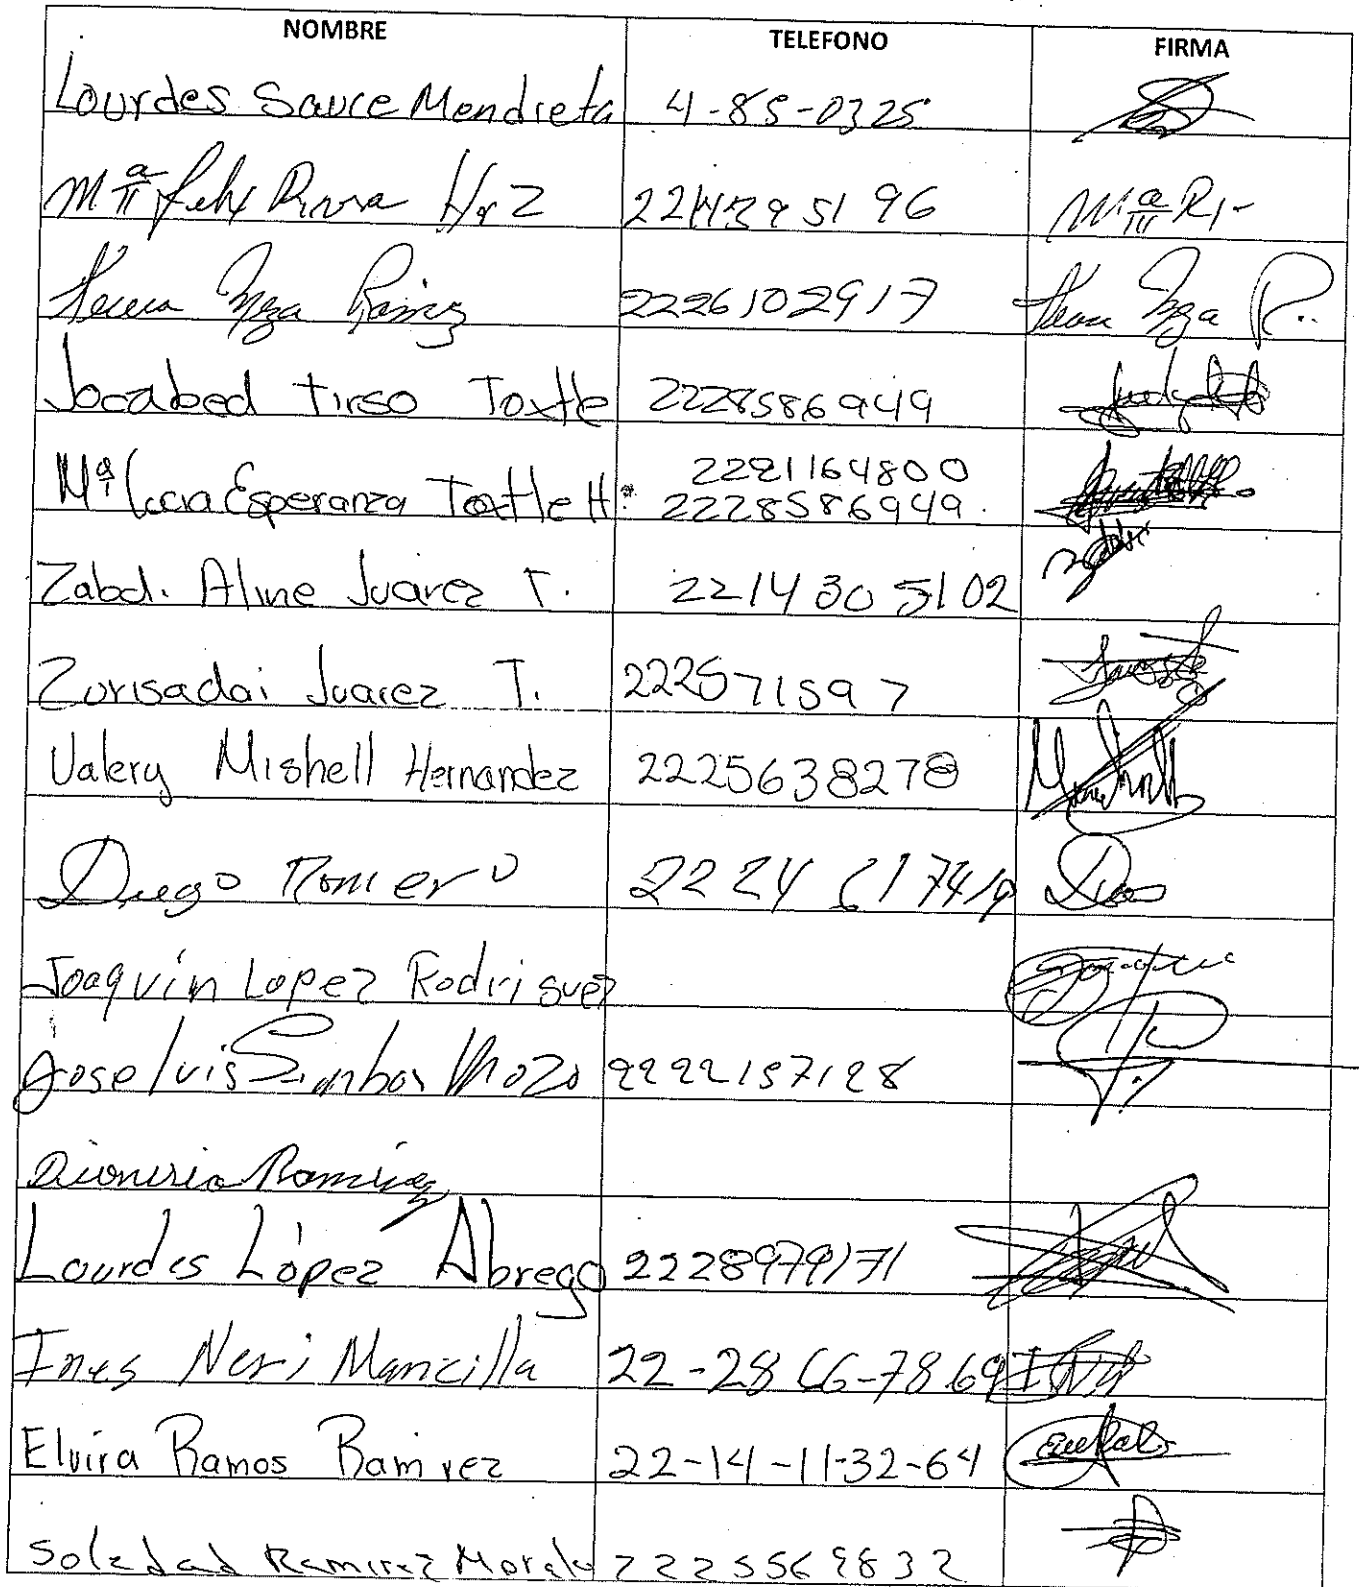 NOMBRE TELEFONO FIRMA
Lourdes Sauce Mendieta 4-85-0325
Mª Felix Rivra Hrz 2214395196 Mª R
Meza 2226102917 Meza R..
Jocabed Tirso Toxtle 2228586949
2221164800
Mª Lucia Esperanza Toxtle H. 2228586949.
Zabd. Aline Juarez T. 221430 5102
Zurisadai Juarez T. 222571597
Valery Mishell Hernandez 2225638278
Diego Romero 2224617419
Joaquin Lopez Rodriguez
Jose luis Mozo 2222157128
Dionisio Ramirez
Lourdes López Abrego 2228979171
Ines Neri Mancilla 22-28 66-78 69
Elvira Ramos Ramirez 22-14-11-32-64
Soledad Ramirez Morales 2225569832